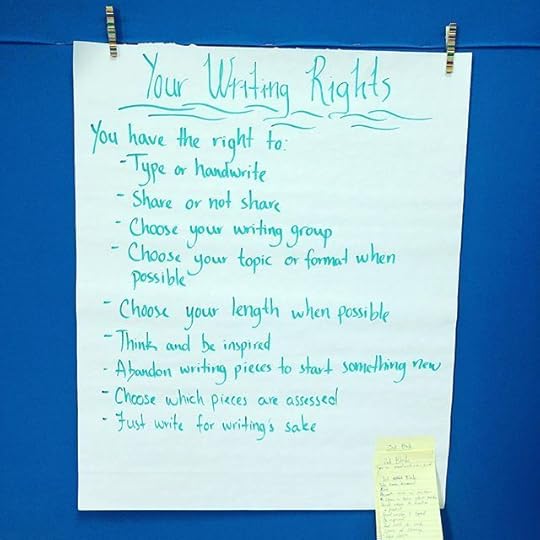 Your Writing Rights
You have the right to:
- Type or handwrite
- Share or not share
- Choose your writing group
- Choose your topic or format when
possible
- Choose your length when possible
- Think and be inspired
- Abandon writing pieces to start something new
- Choose which pieces are assessed
- Just write for writing's sake